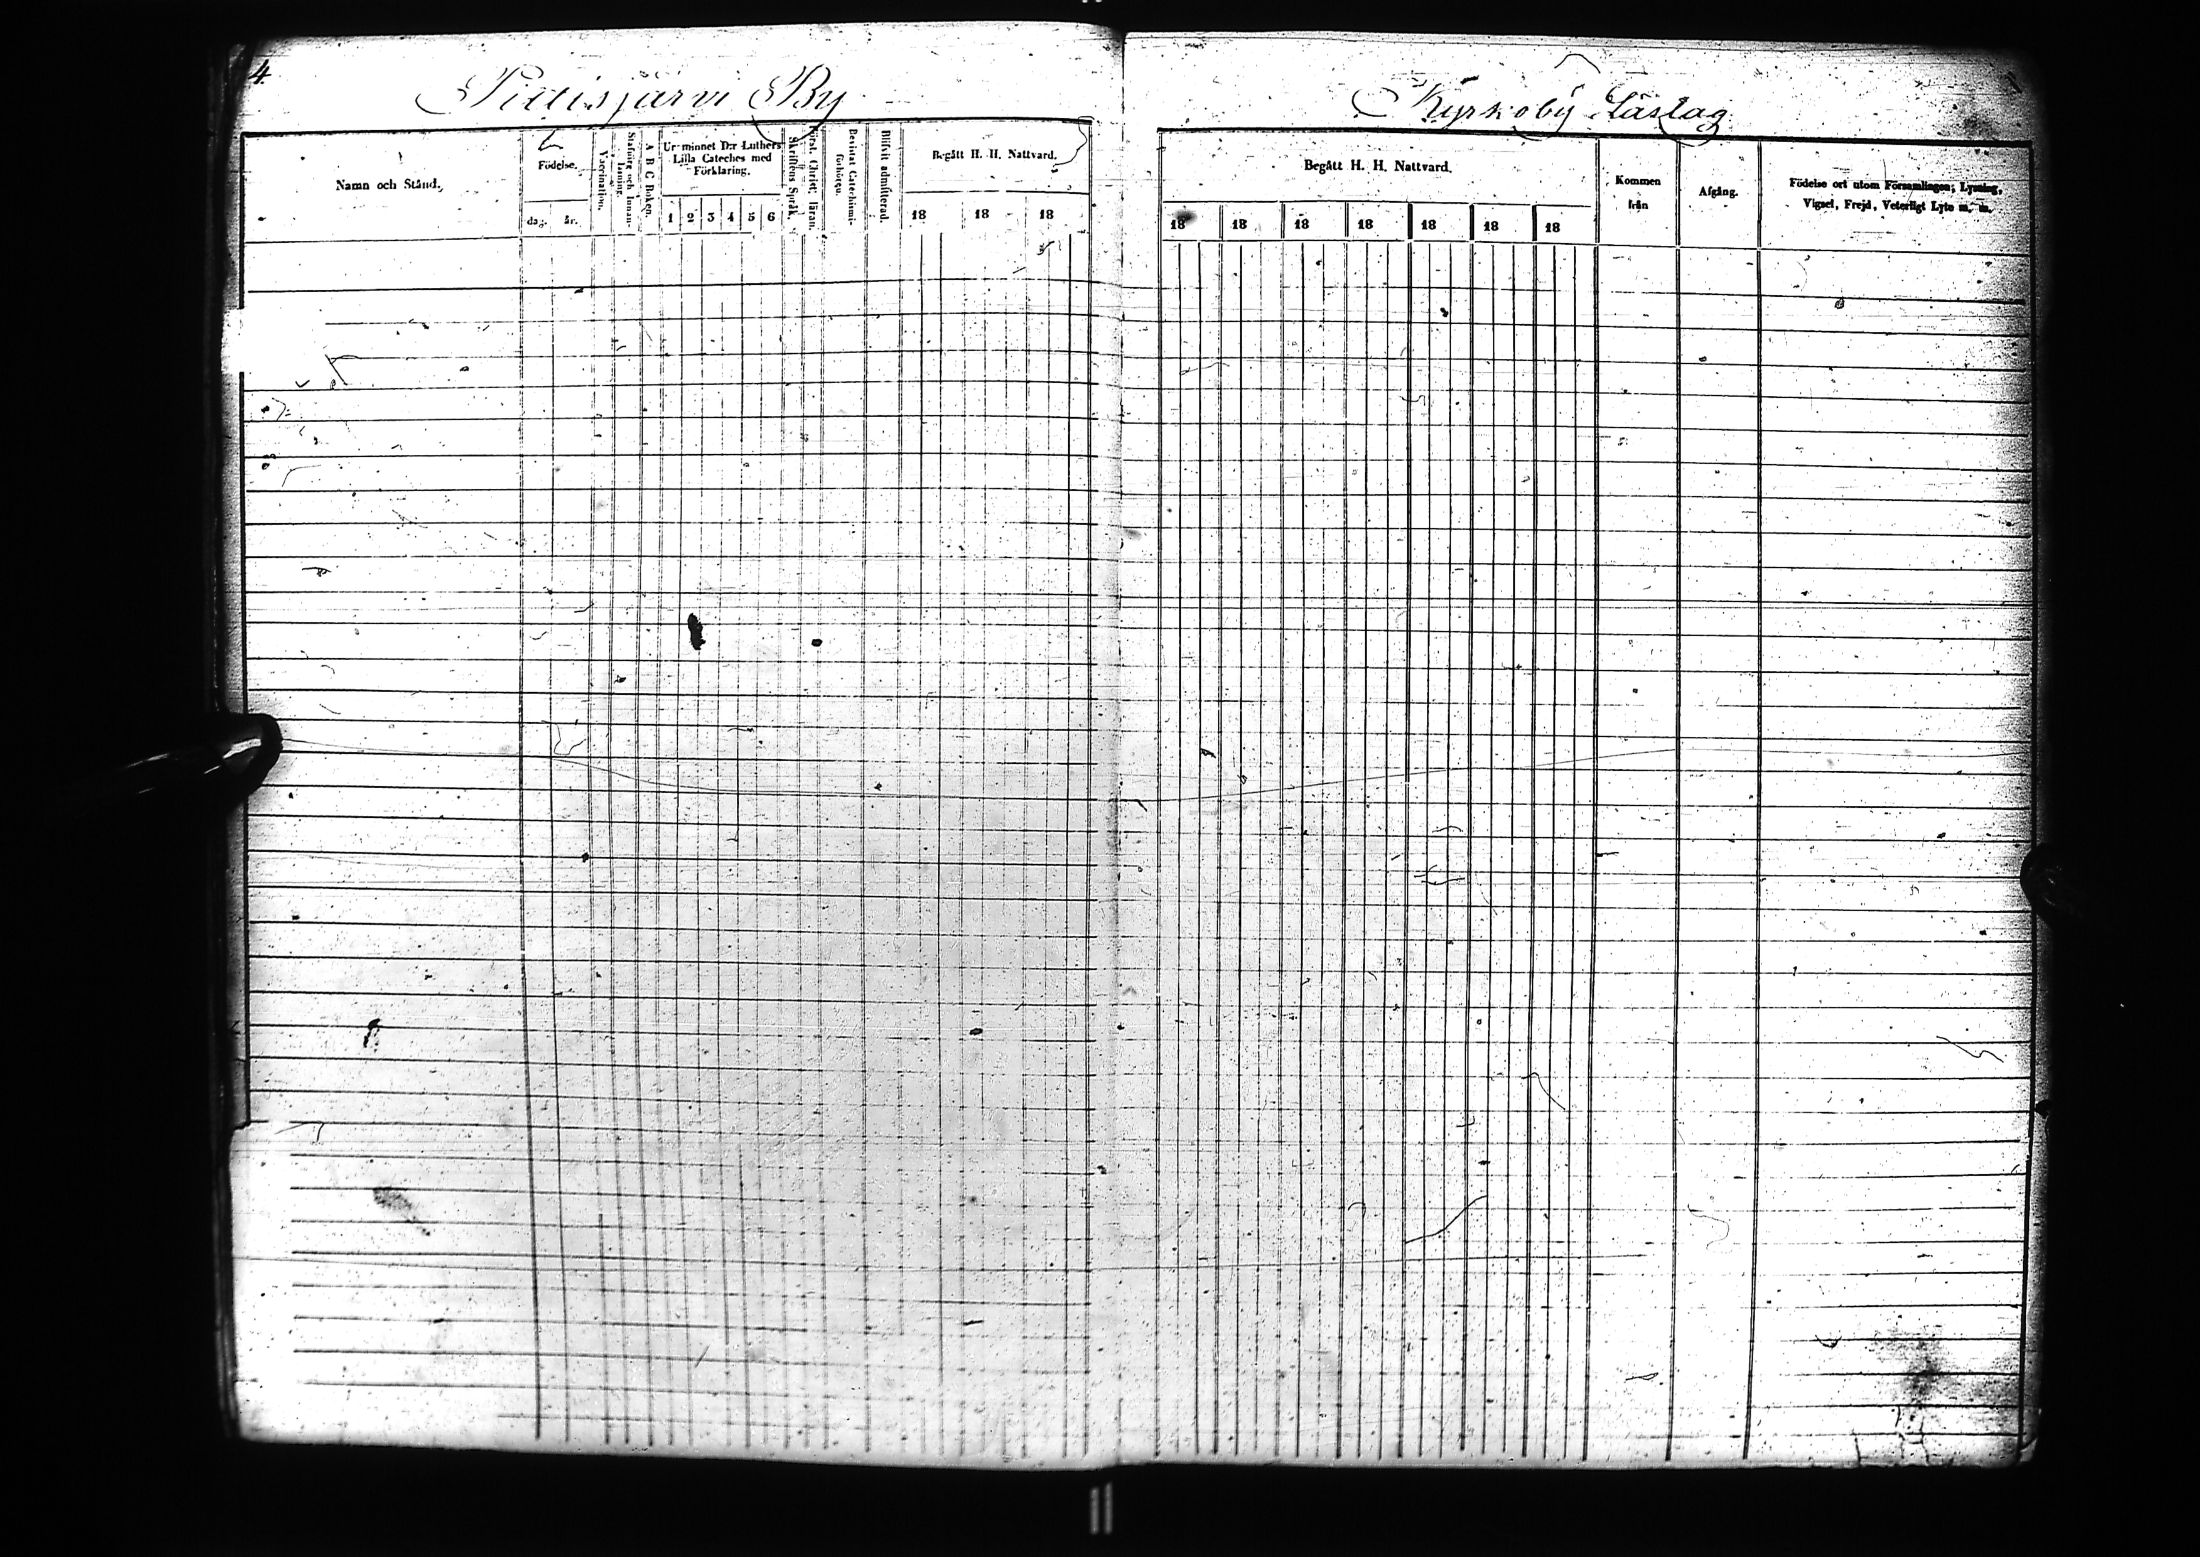 4
Pittisjärvi By
Kyrkoby Läslag
Namn och Stånd.
Födelse.
dag. år.
Vaccination.
Stafning och Innan-
läsning
A B C Boken.
Ur minnet D:r Luthers
Lilla Cateches med
Förklaring.
1 2 3 4 5 6
Skriftens Språk.
Först. Christ: läran.
Bevistat Catechismi-
förhören.
Blifvit admitterad.
Begått H. H. Nattvard.
18 18 18
Begått H. H. Nattvard.
18 18 18 18 18 18 18
Kommen
från
Afgång.
Födelse ort utom Församlingen; Lysning,
Vigsel, Frejd, Veterligt Lyte m. m.